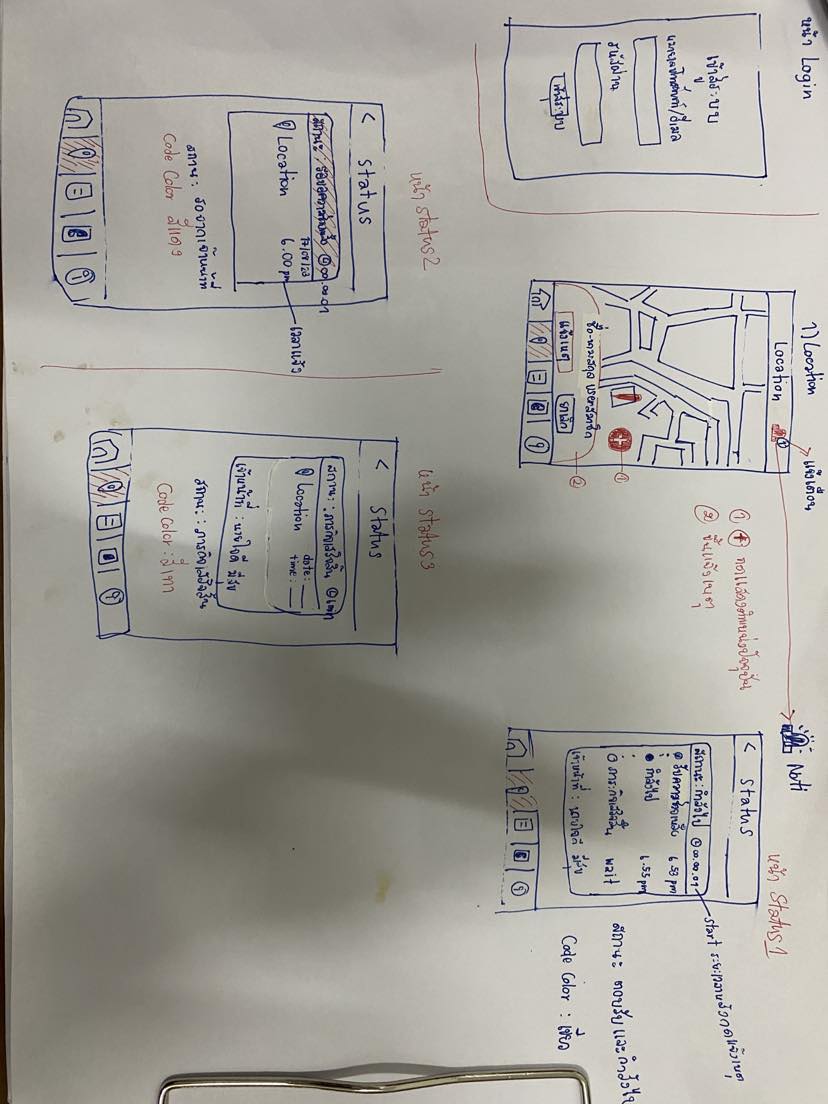 หน้า Login
เข้าสู่ระบบ
หมายเลขโทรศัพท์/อีเมล
รหัสผ่าน
เข้าสู่ระบบ
1) Location
แจ้งเตือน
Location
1
① + กดแสดงตำแหน่งปัจจุบัน
② ขึ้นแจ้งเหตุ
①
ชื่อ-นามสกุล userสมาชิก
②
แจ้งเหตุ
ยกเลิก
Noti
หน้า Status 1
< Status
สถานะ : กำลังไป 00.00.01
start ระยะเวลาหลังกดแจ้งเหตุ
รับความช่วยเหลือ 6.53 pm
กำลังไป 6.55 pm
ภาระกิจเสร็จสิ้น wait
เจ้าหน้าที่ : นายใจดี มีสุข
สถานะ ตอบรับ และ กำลังไป
Code Color : เขียว
หน้า Status 2
< Status
สถานะ : รอขอความช่วยเหลือ 00.00.01
17/08/23
Location 6.00 pm
เวลาแจ้ง
สถานะ : รอจากเจ้าหน้าที่
Code Color สีแดง
หน้า Status 3
< Status
สถานะ : ภารกิจเสร็จสิ้น
Location date:
time:
เจ้าหน้าที่ : นายใจดี มีสุข
สถานะ : ภารกิจเสร็จสิ้น
Code Color : สีเทา